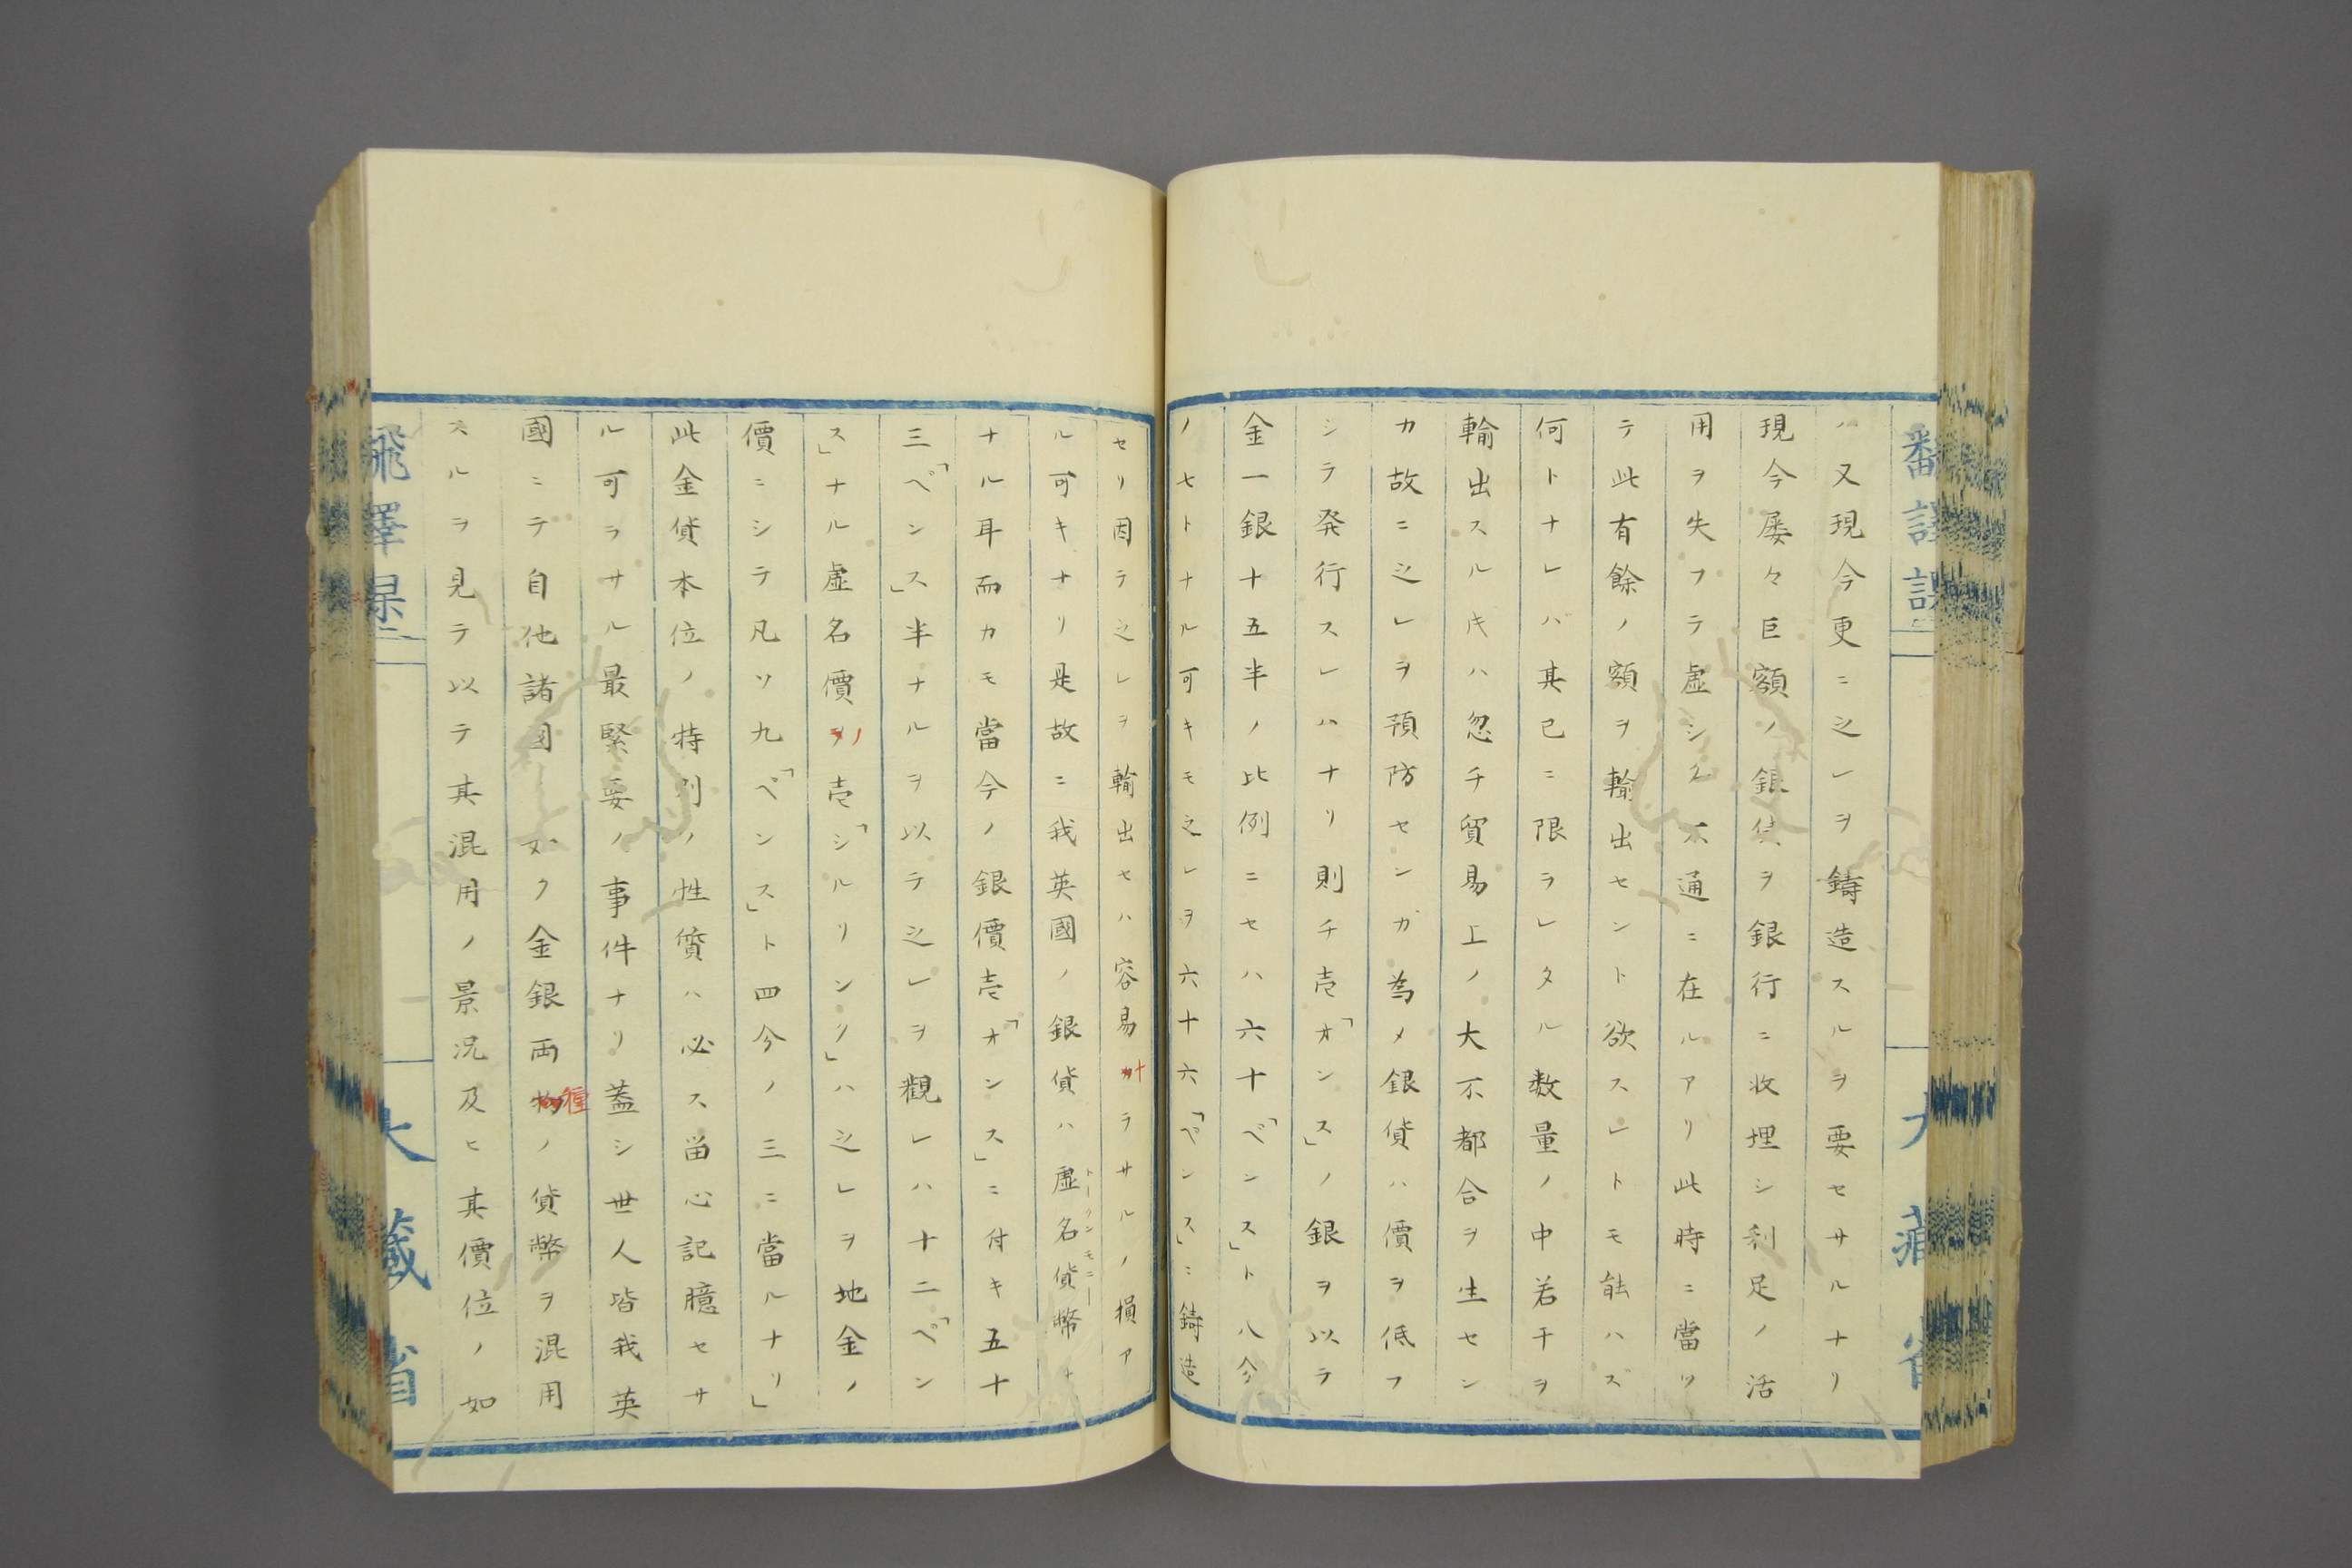 ハ又現今更ニ之レヲ鋳造スルヲ要セサルナリ
現今屡々巨額ノ銀貨ヲ銀行ニ收埋シ利足ノ活
用ヲ失フテ虚シク不通ニ在ルアリ此時ニ當ツ
テ此有餘ノ額ヲ輸出セント欲スレトモ能ハズ
何トナレバ其已ニ限ラレタル数量ノ中若干ヲ
輸出スル𪜈ハ忽チ貿易上ノ大不都合ヲ生セン
カ故ニ之レヲ預防センガ為メ銀貨ハ價ヲ低フ
シテ発行スレハナリ則チ壱「オンス」ノ銀ヲ以テ
金一銀十五半ノ比例ニセハ六十「ペンス」ト八分
ノ七トナル可キモ之レヲ六十六「ペンス」ニ鋳造
セリ因テ之レヲ輸出セハ容易ナラサルノ損ア
ル可キナリ是故ニ我英國ノ銀貨ハ虚名貨幣
トークンモニー
ナル耳而カモ當今ノ銀價壱「オンス」ニ付キ五十
三「ペンス」半ナルヲ以テ之レヲ観レハ十二「ペン
ス」ナル虚名價ノ壱「シルリング」ハ之レヲ地金ノ
價ニシテ凡ソ九「ペンス」ト四分ノ三ニ當ルナリ」
此金貨本位ノ特別ノ性質ハ必ス留心記臆セサ
ル可ラサル最緊要ノ事件ナリ蓋シ世人皆我英
國ニテ自他諸国ノ如ク金銀両種ノ貨幣ヲ混用
スルヲ見テ以テ其混用ノ景況及ヒ其價位ノ如
大藏省
大藏省